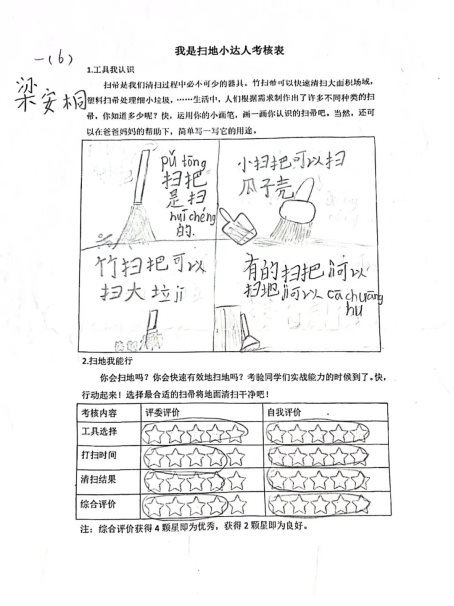 我是扫地小达人考核表
一（6）
梁安桐
1.工具我认识
扫帚是我们清扫过程中必不可少的器具，竹扫帚可以快速清扫大面积场域，
塑料扫帚处理细小垃圾，……生活中，人们根据需求制作出了许多不同种类的扫
帚，你知道多少呢？快，运用你的小画笔，画一画你认识的扫帚吧。当然，还可
以在爸爸妈妈的帮助下，简单写一写它的用途。
pǔ tōng
扫把
是扫
huī chén
的.
小扫把可以扫
瓜子壳
竹扫把可以
扫大垃jī
有的扫把可以
扫地可以cā chuāng
hu
2.扫地我能行
你会扫地吗？你会快速有效地扫地吗？考验同学们实战能力的时候到了。快，
行动起来！选择最合适的扫帚将地面清扫干净吧！
考核内容 评委评价 自我评价
工具选择
打扫时间
清扫结果
综合评价
注：综合评价获得 4 颗星即为优秀，获得 2 星即为良好。